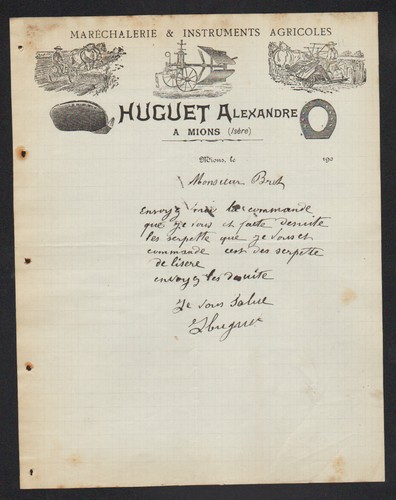 MARÉCHALERIE & INSTRUMENTS AGRICOLES
HUGUET ALEXANDRE
A MIONS (Isère)
Mions, le 190
Monsieur
Envoyz la commande
que je vous et faite desuite
les serpette que je vous et
commande cest des serpette
de lisere
envoyez les desuite
Je vous Salue
Huguet